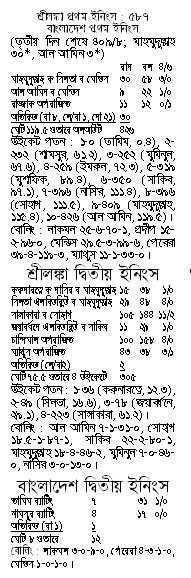 শ্রীলঙ্কা প্রথম ইনিংস : ৫৮৭
বাংলাদেশ প্রথম ইনিংস
(তৃতীয় দিন শেষে ৪০৯/৮; মাহমুদুল্লাহ
৩০*, আল আমিন ৩*)
রান বল ৪/৬
মাহমুদুল্লাহ ক সিলভা ব মেন্ডিস ৩০ ৫৮ ৩/০
আল আমিন ব মেন্ডিস ৯ ২২ ১/০
রাজ্জাক অপরাজিত ১১ ১২ ০/১
অতিরিক্ত ৩০
মোট ১১৯.৫ ওভারে অলআউট ৪২৬
উইকেট পতন : ১০ (তামিম, ০.৪), ২-
২৩২ (শামসুর, ৬১.২), ৩-২৫২ (মুমিনুল,
৬৭.৬), ৪-২৫৯ (ইমরুল, ৭২.৩), ৫-৩১৯
(মুশফিক, ৮৯.৪), ৬-৩৫০ (সাকিব,
৯৭.১), ৭-৩৯৬ (নাসির, ১১১.৪), ৮-৩৯৬
(সোহাগ, ১১১.৫), ৯-৪০৯ (মাহমুদুল্লাহ,
১১৫.৪), ১০-৪২৬ (আল আমিন, ১১৯.৫)।
বোলিং : লাকমল ২৫-৬-৭০-১, প্রদীপ ১৫-
২-৯৬-০, মেন্ডিস ২৯.৫-৩-৯৯-৬, পেরেরা
৩৯-৪-১১৯-৩, ম্যাথুস ১১-১-৩৩-০।
শ্রীলঙ্কা দ্বিতীয় ইনিংস
করুনারত্নে ক নাসির ব মাহমুদুল্লাহ ১৫ ৩৮ ১/০
সিলভা এলবিডব্লিউ ব মাহমুদুল্লাহ ২৯ ৪৮ ৪/০
সাঙ্গাকারা ব সোহাগ ১০৫ ১৪৪ ১১/২
জয়াবর্ধনে এলবিডব্লিউ ব সাকিব ১১ ২৯ ১/০
চান্দিমাল অপরাজিত ১০০ ১৫৮ ৪/৩
ম্যাথুস অপরাজিত ৪৩ ৩৮ ৩/১
অতিরিক্ত ২
মোট ৭৫.৫ ওভারে ৪ উইকেটে ৩০৫
উইকেট পতন : ১-৩৬ (করুনারত্নে, ১২.৩),
২-৪৯ (সিলভা, ১৬.৬), ৩-৭৮ (জয়াবর্ধনে,
২৯.১), ৪-২২৩ (সাঙ্গাকারা, ৬১.২)।
বোলিং : আল আমিন ৭-১-৩১-০, সোহাগ
১৮.৫-১-৮৭-১, সাকিব ২২-২-৮০-১,
মাহমুদুল্লাহ ১৮-৪-৪৬-২, মুমিনুল ৭-০-৪৬-
০, নাসির ৩-০-১৩-০।
বাংলাদেশ দ্বিতীয় ইনিংস
তামিম ব্যাটিং ৭ ৩১ ১/০
শামসুর ব্যাটিং ৪ ১৭ ০/০
অতিরিক্ত ১
মোট ৮ ওভারে ১২
বোলিং : লাকমল ৩-০-৯-০, পেরেরা ৪-৩-১-০,
মেন্ডিস ১-০-১-০।